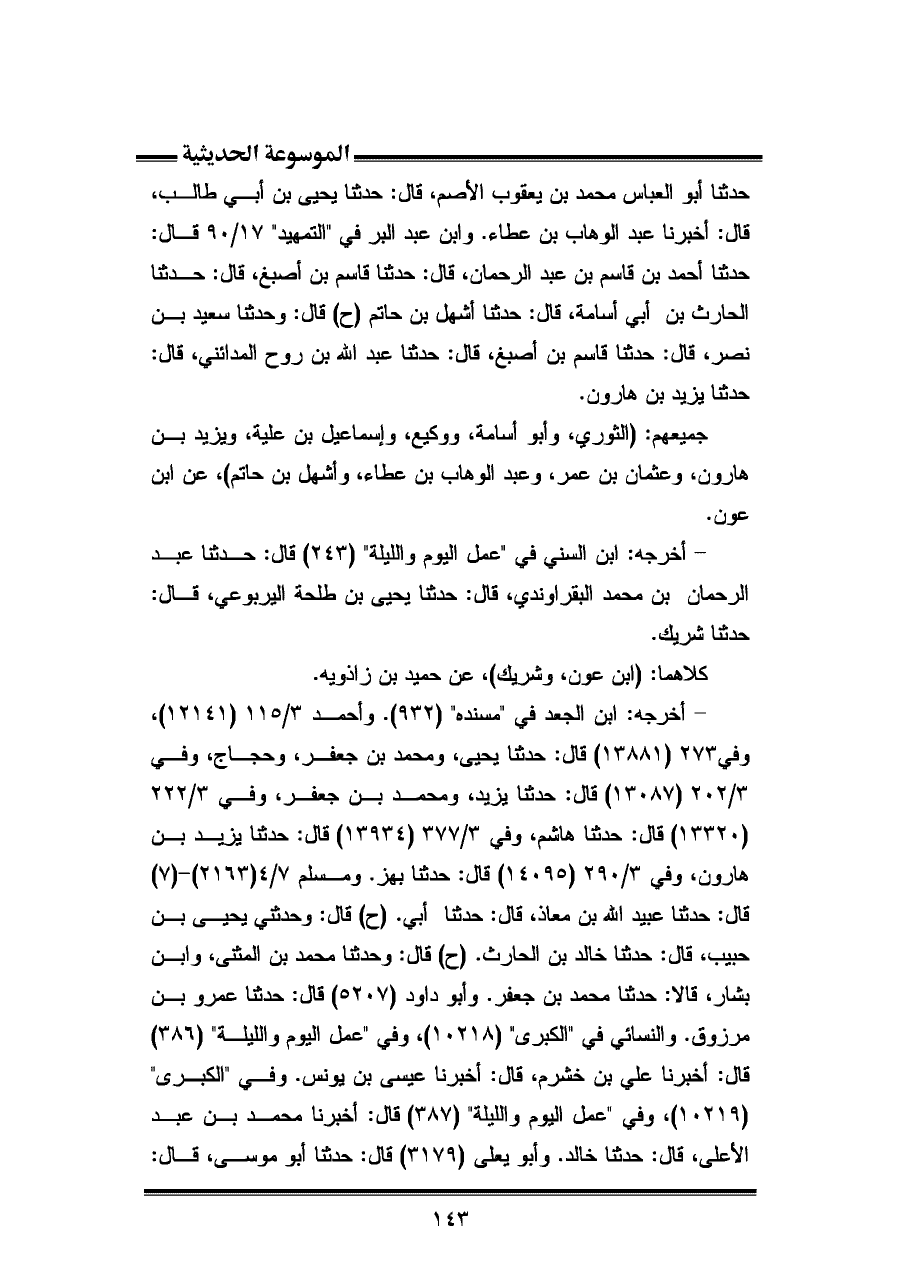 الموسوعة الحديثية
حدثنا أبو العباس محمد بن يعقوب الأصم، قال: حدثنا يحيى بن أبي طالب،
قال: أخبرنا عبد الوهاب بن عطاء. وابن عبد البر في "التمهيد" ٩٠/١٧ قال:
حدثنا أحمد بن قاسم بن عبد الرحمان، قال: حدثنا قاسم بن أصبغ، قال: حدثنا
الحارث بن أبي أسامة، قال: حدثنا أشهل بن حاتم (ح) قال: وحدثنا سعيد بن
نصر، قال: حدثنا قاسم بن أصبغ، قال: حدثنا عبد الله بن روح المدائني، قال:
حدثنا يزيد بن هارون.
جميعهم: (الثوري، وأبو أسامة، ووكيع، وإسماعيل بن علية، ويزيد بن
هارون، وعثمان بن عمر، وعبد الوهاب بن عطاء، وأشهل بن حاتم)، عن ابن
عون.
– أخرجه: ابن السني في "عمل اليوم والليلة" (٢٤٣) قال: حدثنا عبد
الرحمان بن محمد البقراوندي، قال: حدثنا يحيى بن طلحة اليربوعي، قال:
حدثنا شريك.
كلاهما: (ابن عون، وشريك)، عن حميد بن زاذويه.
– أخرجه: ابن الجعد في "مسنده" (٩٣٢). وأحمد ١١٥/٣ (١٢١٤١)،
وفي٢٧٣ (١٣٨٨١) قال: حدثنا يحيى، ومحمد بن جعفر، وحجاج، وفي
٢٠٢/٣ (١٣٠٨٧) قال: حدثنا يزيد، ومحمد بن جعفر، وفي ٢٢٢/٣
(١٣٣٢٠) قال: حدثنا هاشم، وفي ٣٧٧/٣ (١٣٩٣٤) قال: حدثنا يزيد بن
هارون، وفي ٢٩٠/٣ (١٤٠٩٥) قال: حدثنا بهز. ومسلم ٤/٧(٢١٦٣)–(٧)
قال: حدثنا عبيد الله بن معاذ، قال: حدثنا أبي. (ح) قال: وحدثني يحيى بن
حبيب، قال: حدثنا خالد بن الحارث. (ح) قال: وحدثنا محمد بن المثنى، وابن
بشار، قالا: حدثنا محمد بن جعفر. وأبو داود (٥٢٠٧) قال: حدثنا عمرو بن
مرزوق. والنسائي في "الكبرى" (١٠٢١٨)، وفي "عمل اليوم والليلة" (٣٨٦)
قال: أخبرنا علي بن خشرم، قال: أخبرنا عيسى بن يونس. وفي "الكبرى"
(١٠٢١٩)، وفي "عمل اليوم والليلة" (٣٨٧) قال: أخبرنا محمد بن عبد
الأعلى، قال: حدثنا خالد. وأبو يعلى (٣١٧٩) قال: حدثنا أبو موسى، قال:
١٤٣